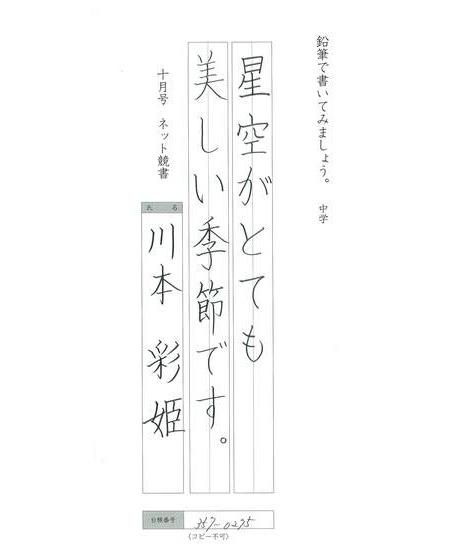 鉛筆で書いてみましょう。 中学
星空がとても
美しい季節です。
十月号 ネット競書
氏名
川本 彩姫
台帳番号 357-0275
(コピー不可)